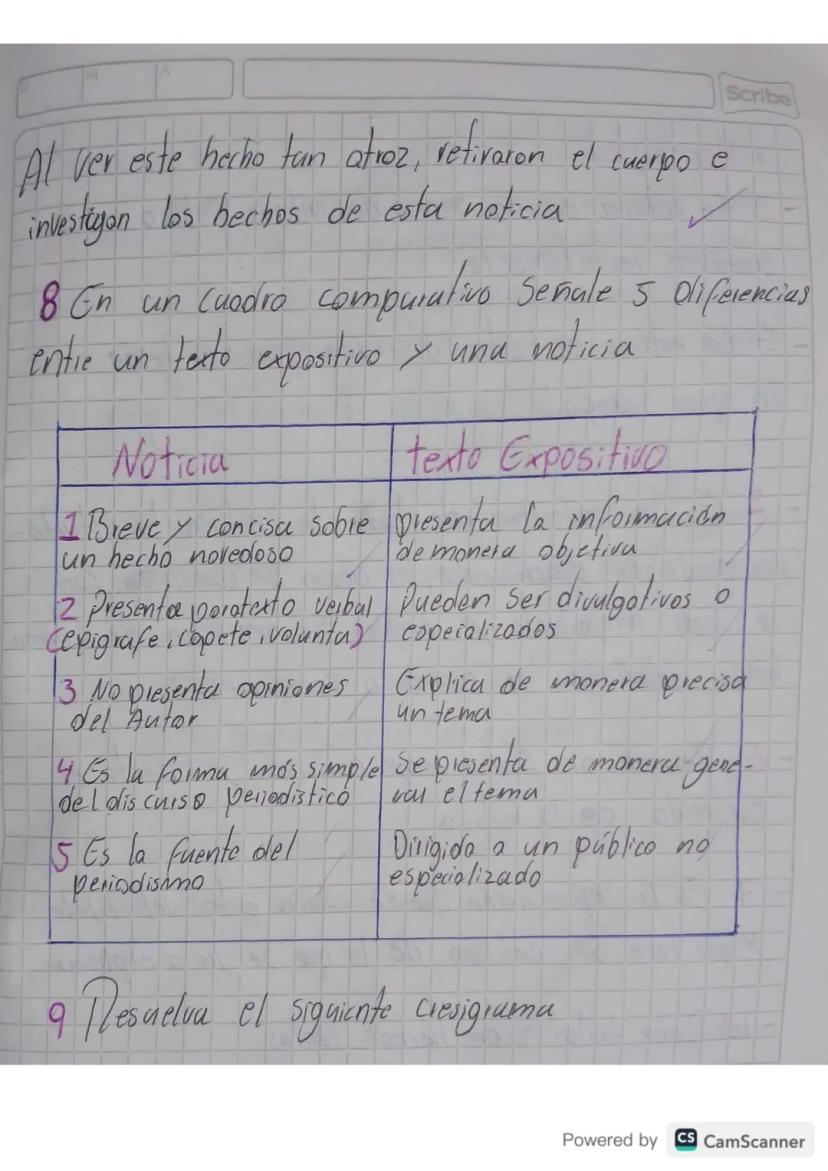 Scribe
Al ver este hecho tan atroz, retiraron el cuerpo e
investigan los hechos de esta noticia
8 En un cuadro comparativo señale 5 diferencias
entre un texto expositivo y una noticia
Noticia
texto Expositivo
1 Breve y concisa sobre
un hecho novedoso
presenta la información
de manera objetiva
2 Presenta paratexto verbal
(epigrafe, copete, volanta)
Pueden ser divulgativos o
especializados
3 No presenta opiniones
del Autor
Explica de manera precisa
un tema
4 Es la forma más simple
del discurso periodistico
Se presenta de manera gene-
ral el tema
5 Es la fuente del
periodismo
Dirigido a un público no
especializado
9 Resuelva el siguiente cresigrama
Powered by CS CamScanner